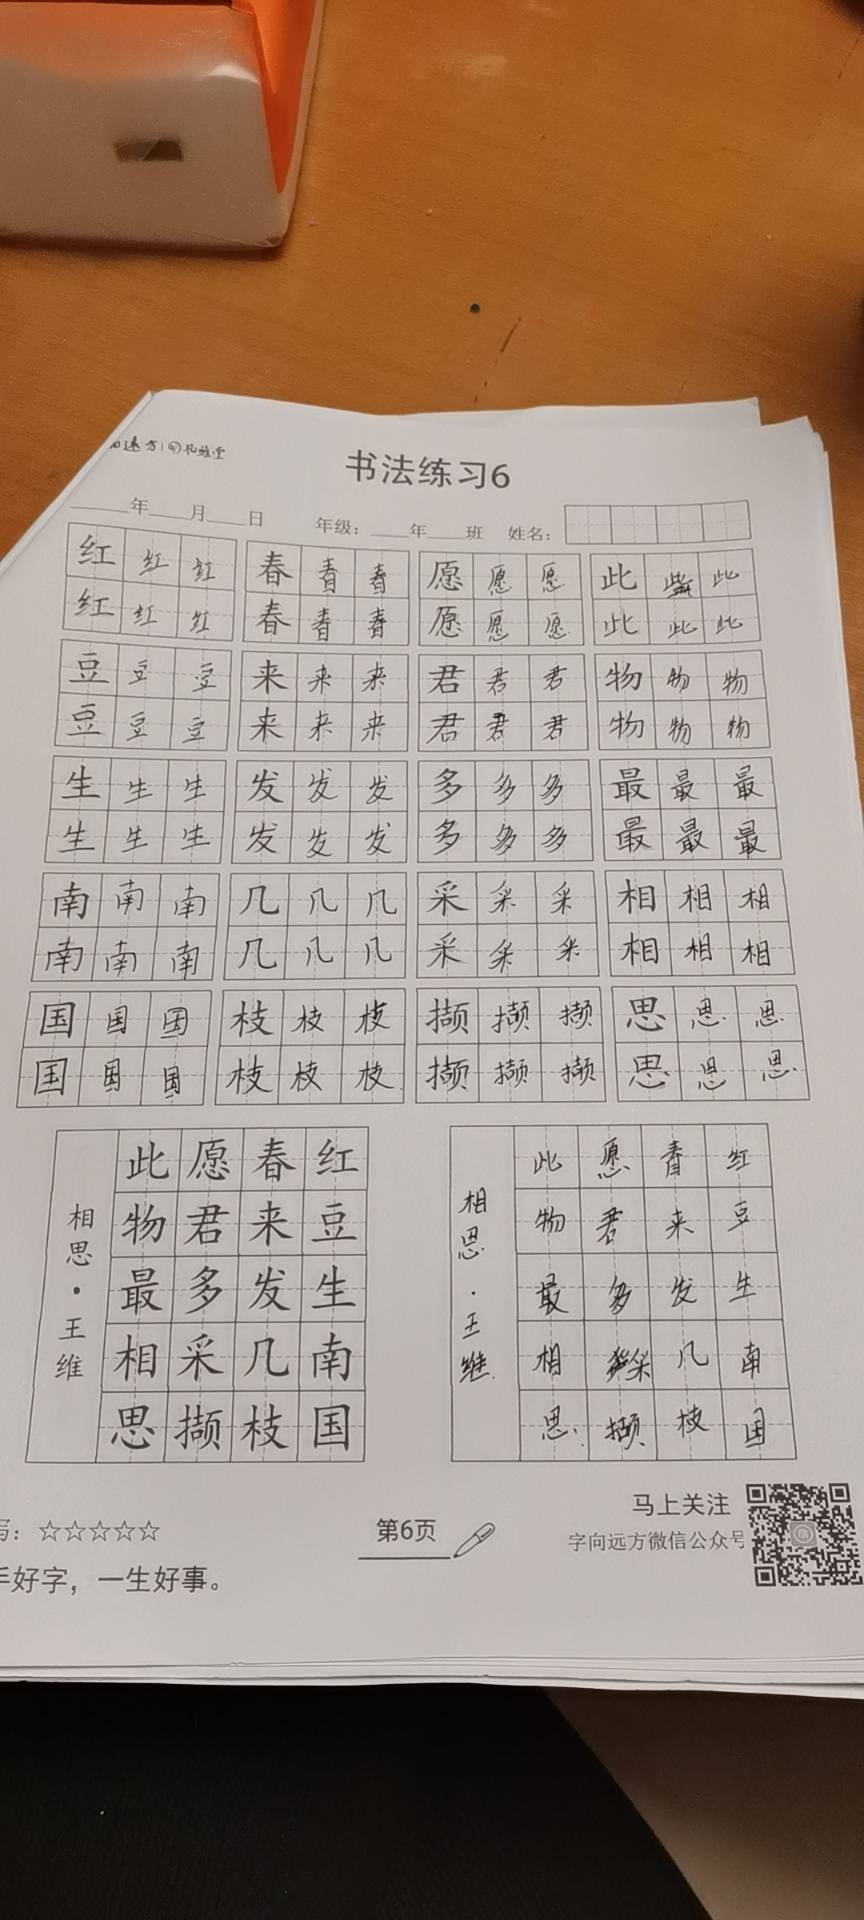 书法练习6
____年____月____日 年级：____年____班 姓名：
红 红 红 春 春 春 愿 愿 愿 此 此
红 红 红 春 春 春 愿 愿 愿 此 此 此
豆 豆 豆 来 来 来 君 君 君 物 物 物
豆 豆 豆 来 来 来 君 君 君 物 物 物
生 生 生 发 发 发 多 多 多 最 最 最
生 生 生 发 发 发 多 多 多 最 最 最
南 南 南 几 几 几 采 采 采 相 相 相
南 南 南 几 几 几 采 采 采 相 相 相
国 国 国 枝 枝 枝 撷 撷 撷 思 思 思
国 国 国 枝 枝 枝 撷 撷 撷 思 思 思
相思·王维
红豆生南国
春来发几枝
愿君多采撷
此物最相思
相思·王维
红豆生南国
春来发几枝
愿君多采撷
此物最相思
写：☆☆☆☆☆
第6页
马上关注
字向远方微信公众号
手好字，一生好事。